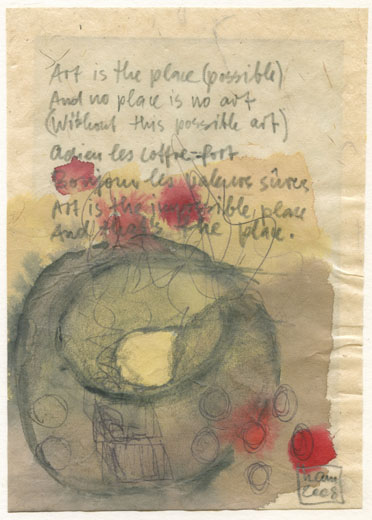 Art is the place (possible)
And no place is no art
(Without this possible art)
adieu les coffre-fort
Bonjour les valeurs sûres
Art is the impossible place
And that's the place.
2008